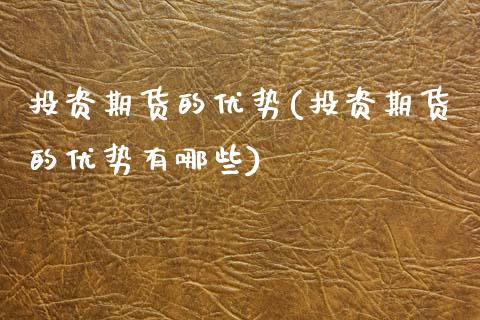 投资期货的优势(投资期货
的优势有哪些)